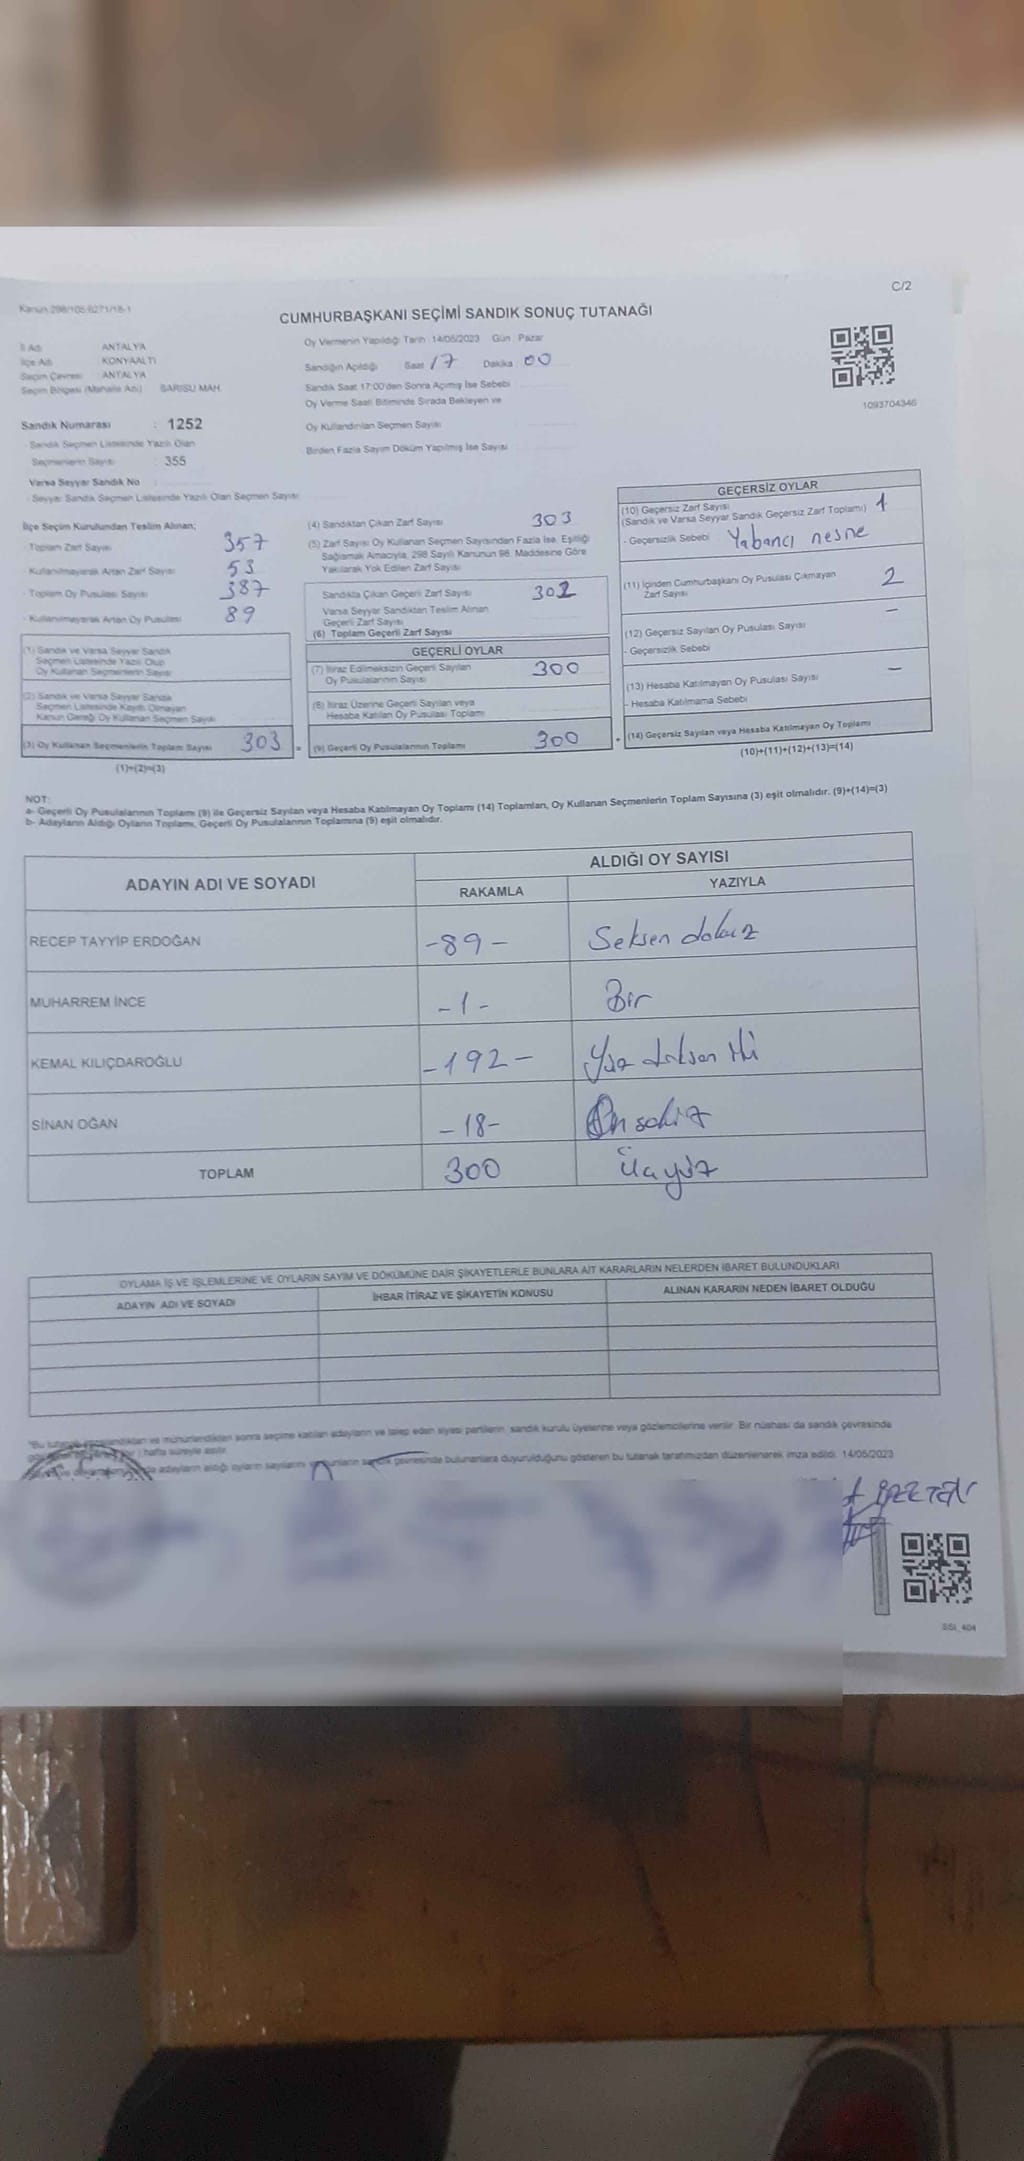 C/2
Kanun 298/105 6271/18-1
CUMHURBAŞKANI SEÇİMİ SANDIK SONUÇ TUTANAĞI
İl Adı : ANTALYA
İlçe Adı : KONYAALTI
Seçim Çevresi : ANTALYA
Seçim Bölgesi (Mahalle Adı) : SARISU MAH.
Sandık Numarası : 1252
- Sandık Seçmen Listesinde Yazılı Olan
Seçmenlerin Sayısı : 355
Varsa Seyyar Sandık No :
- Seyyar Sandık Seçmen Listesinde Yazılı Olan Seçmen Sayısı
Oy Vermenin Yapıldığı Tarih 14/05/2023 Gün : Pazar
Sandığın Açıldığı Saat 17 Dakika 00
Sandık Saat 17:00'den Sonra Açılmış İse Sebebi
Oy Verme Saati Bitiminde Sırada Bekleyen ve
Oy Kullandırılan Seçmen Sayısı
Birden Fazla Sayım Döküm Yapılmış İse Sayısı
1093704346
İlçe Seçim Kurulundan Teslim Alınan;
- Toplam Zarf Sayısı 357
- Kullanılmayarak Artan Zarf Sayısı 53
- Toplam Oy Pusulası Sayısı 387
- Kullanılmayarak Artan Oy Pusulası 89
(1) Sandık ve Varsa Seyyar Sandık
Seçmen Listesinde Yazılı Olup
Oy Kullanan Seçmenlerin Sayısı
(2) Sandık ve Varsa Seyyar Sandık
Seçmen Listesinde Kayıtlı Olmayan
Kanun Gereği Oy Kullanan Seçmen Sayısı
(3) Oy Kullanan Seçmenlerin Toplam Sayısı 303 =
(1)+(2)=(3)
(4) Sandıktan Çıkan Zarf Sayısı 303
(5) Zarf Sayısı Oy Kullanan Seçmen Sayısından Fazla İse, Eşitliği
Sağlamak Amacıyla, 298 Sayılı Kanunun 98. Maddesine Göre
Yakılarak Yok Edilen Zarf Sayısı
Sandıkta Çıkan Geçerli Zarf Sayısı 302
Varsa Seyyar Sandıktan Teslim Alınan
Geçerli Zarf Sayısı
(6) Toplam Geçerli Zarf Sayısı
GEÇERLİ OYLAR
(7) İtiraz Edilmeksizin Geçerli Sayılan
Oy Pusulalarının Sayısı 300
(8) İtiraz Üzerine Geçerli Sayılan veya
Hesaba Katılan Oy Pusulası Toplamı
(9) Geçerli Oy Pusulalarının Toplamı 300 +
GEÇERSİZ OYLAR
(10) Geçersiz Zarf Sayısı
(Sandık ve Varsa Seyyar Sandık Geçersiz Zarf Toplamı) 1
- Geçersizlik Sebebi Yabancı nesne
(11) İçinden Cumhurbaşkanı Oy Pusulası Çıkmayan
Zarf Sayısı 2
(12) Geçersiz Sayılan Oy Pusulası Sayısı –
- Geçersizlik Sebebi
(13) Hesaba Katılmayan Oy Pusulası Sayısı –
- Hesaba Katılmama Sebebi
(14) Geçersiz Sayılan veya Hesaba Katılmayan Oy Toplamı
(10)+(11)+(12)+(13)=(14)
NOT:
a- Geçerli Oy Pusulalarının Toplamı (9) ile Geçersiz Sayılan veya Hesaba Katılmayan Oy Toplamı (14) Toplamları, Oy Kullanan Seçmenlerin Toplam Sayısına (3) eşit olmalıdır. (9)+(14)=(3)
b- Adayların Aldığı Oyların Toplamı, Geçerli Oy Pusulalarının Toplamına (9) eşit olmalıdır.
ADAYIN ADI VE SOYADI
ALDIĞI OY SAYISI
RAKAMLA YAZIYLA
RECEP TAYYİP ERDOĞAN -89- Seksen dokuz
MUHARREM İNCE -1- Bir
KEMAL KILIÇDAROĞLU -192- Yüz doksan iki
SİNAN OĞAN -18- On sekiz
TOPLAM 300 Üçyüz
OYLAMA İŞ VE İŞLEMLERİNE VE OYLARIN SAYIM VE DÖKÜMÜNE DAİR ŞİKAYETLERLE BUNLARA AİT KARARLARIN NELERDEN İBARET BULUNDUKLARI
ADAYIN ADI VE SOYADI İHBAR İTİRAZ VE ŞİKAYETİN KONUSU ALINAN KARARIN NEDEN İBARET OLDUĞU
"Bu tutanak imzalandıktan ve mühürlendikten sonra seçime katılan adayların ve talep eden siyasi partilerin, sandık kurulu üyelerine veya gözlemcilerine verilir. Bir nüshası da sandık çevresinde
hafta süreyle asılır.
adayların aldığı oyların sayılarını sandık çevresinde bulunanlara duyurulduğunu gösteren bu tutanak tarafımızdan düzenlenerek imza edildi. 14/05/2023
SSİ_404